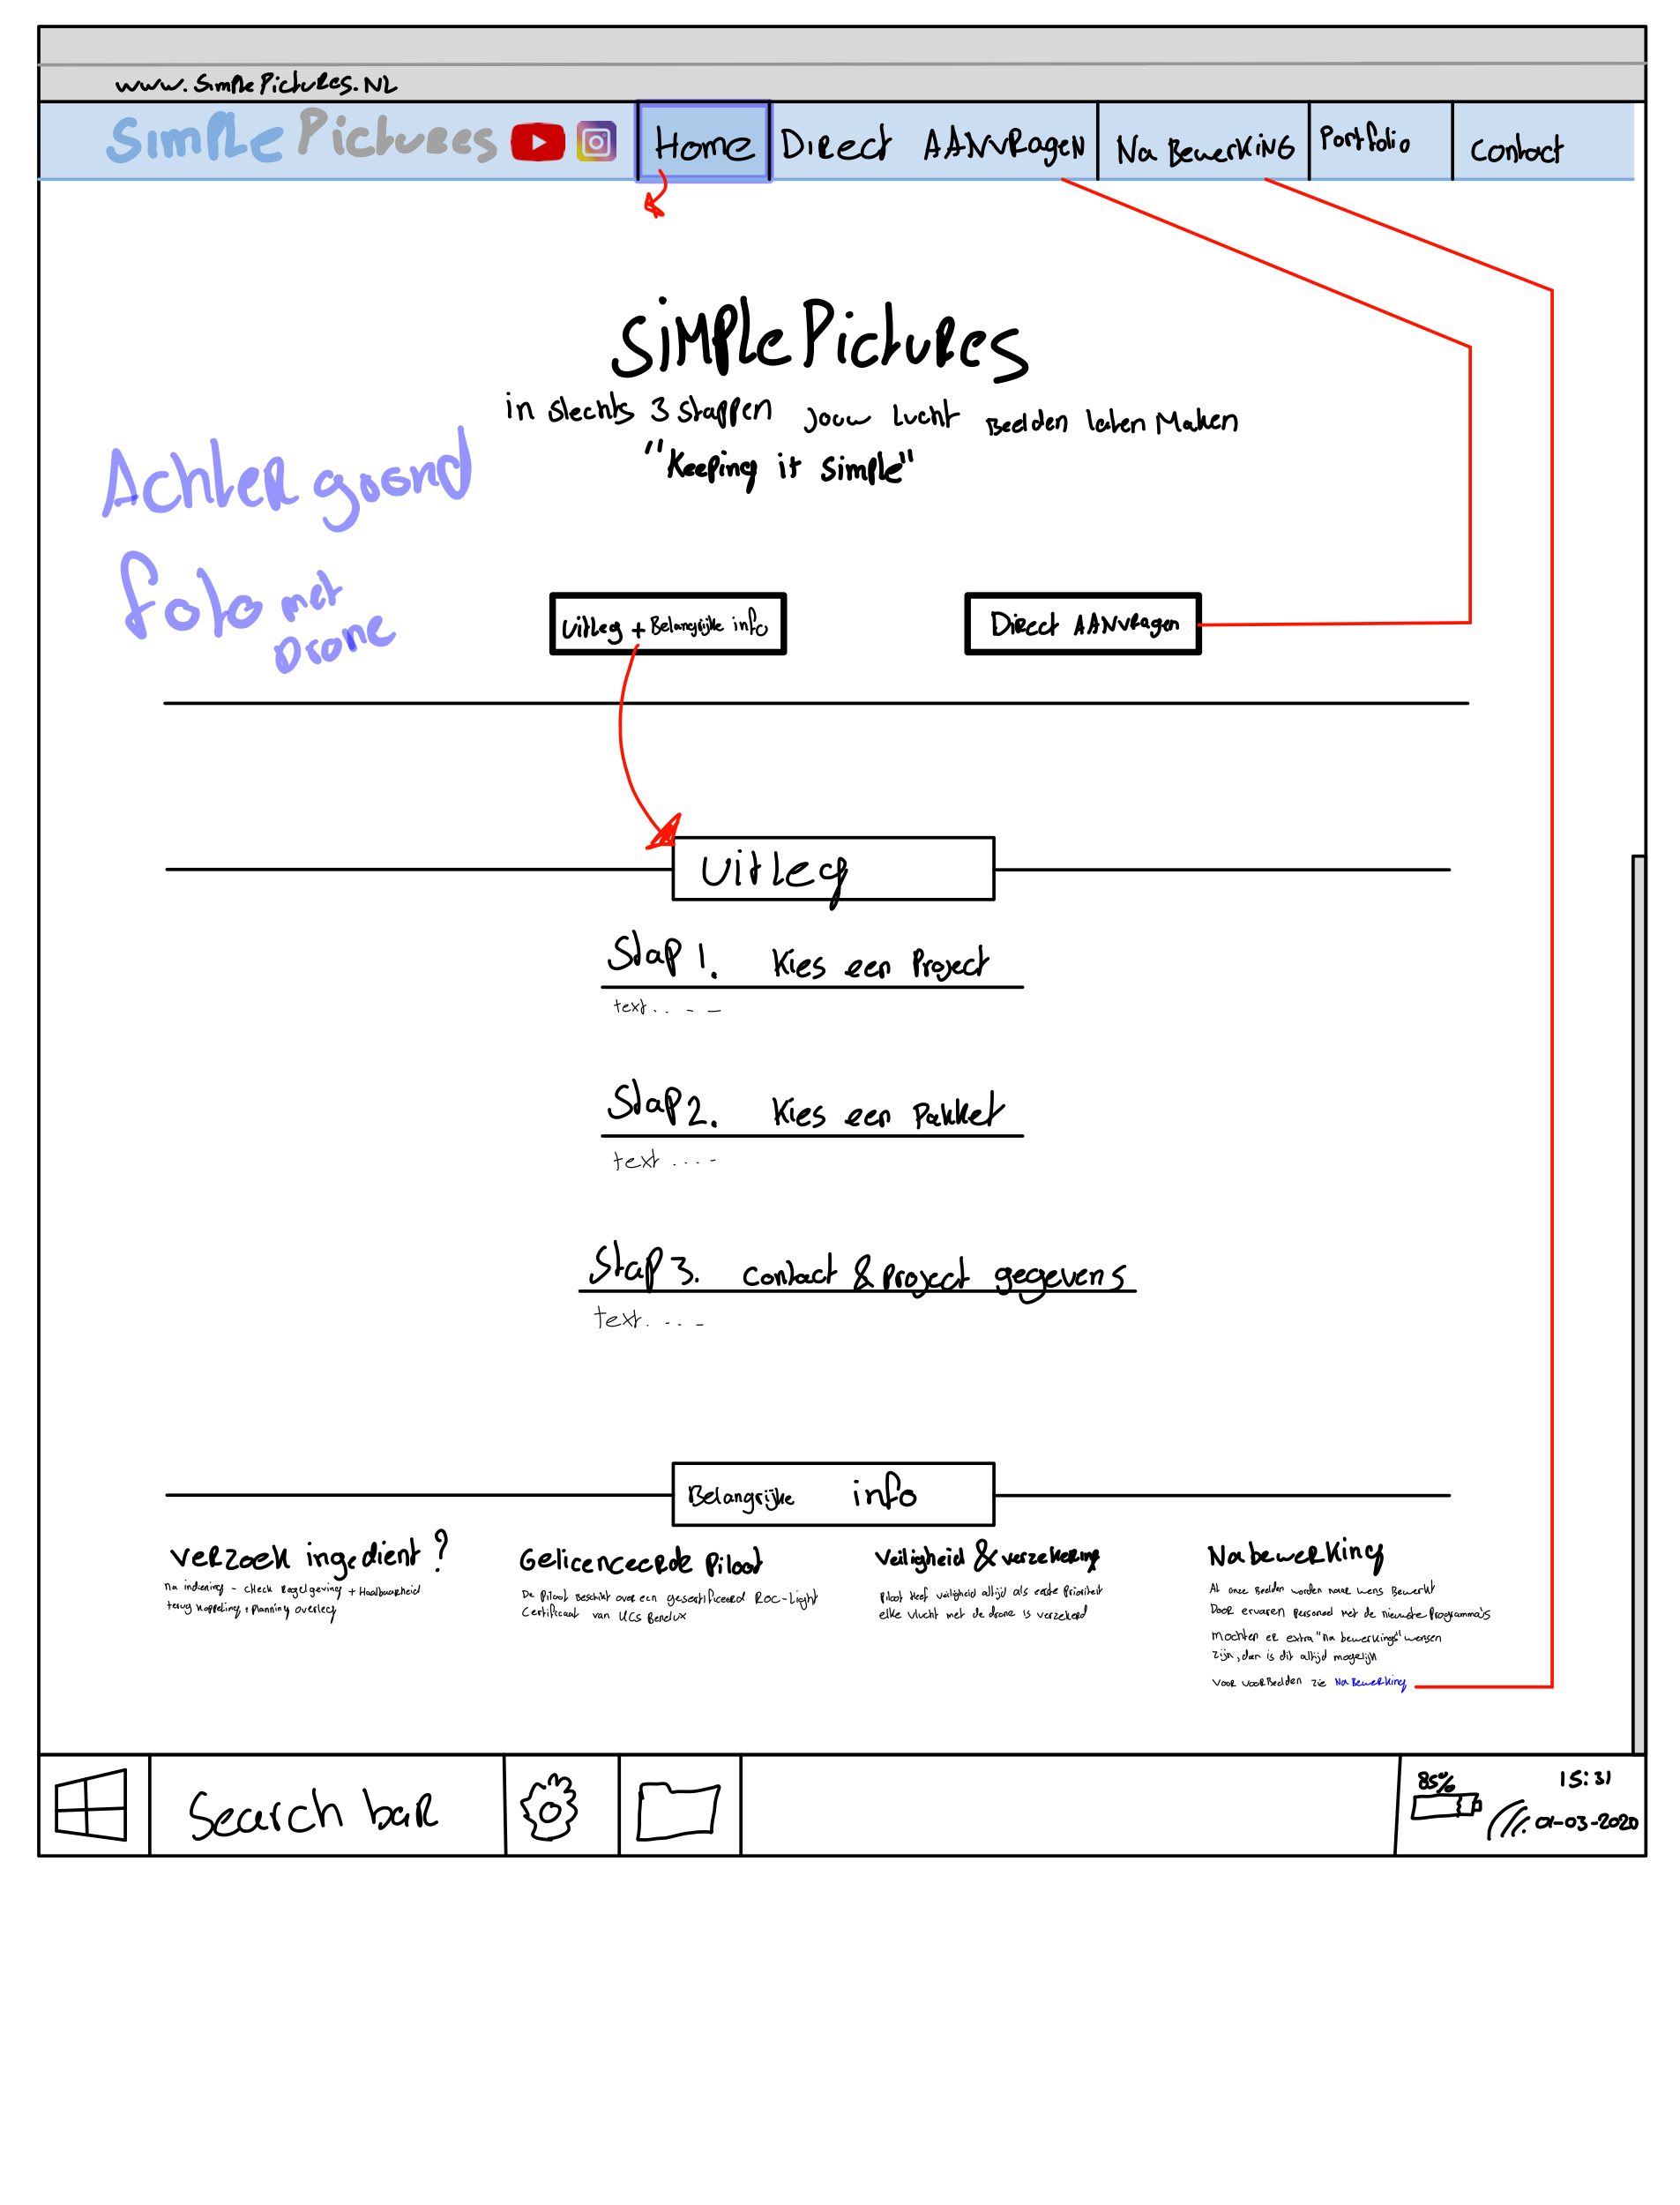 www.SimplePictures.NL
Simple Pictures Home Direct AANVRagen Na BewerKiNG Portfolio Contact
SiMPle Pictures
in slechts 3 stappen jouw lucht Beelden laten Maken
"Keeping it simple"
Achter groond
foto met
Drone
Uitleg + Belangrijke info Direct AANVRagen
Uitleg
Stap 1. Kies een Project
text....
Stap 2. Kies een Pakket
text....
Stap 3. Contact & Project gegevens
text....
Belangrijke info
Verzoek ingedient?
na indiening - Check Regelgeving + Haalbaarheid
terug koppeling + Planning overleg
Gelicenceerde Piloot
De Piloot Beschikt over een gesertificeerd ROC-Light
Certificaat van UCS Benelux
Veiligheid & verzekering
Piloot Heef veiligheid altijd als eerste Prioriteit
elke vlucht met de drone is verzekerd
Nabewerking
Al onze Beelden worden naar wens Bewerkt
Door ervaren personeel met de nieuwste Programma's
Mochten er extra "na bewerkings" wensen
zijn, dan is dit altijd mogelijk
Voor voorBeelden zie Na Bewerking
Search baR
85%
15:31
01-03-2020